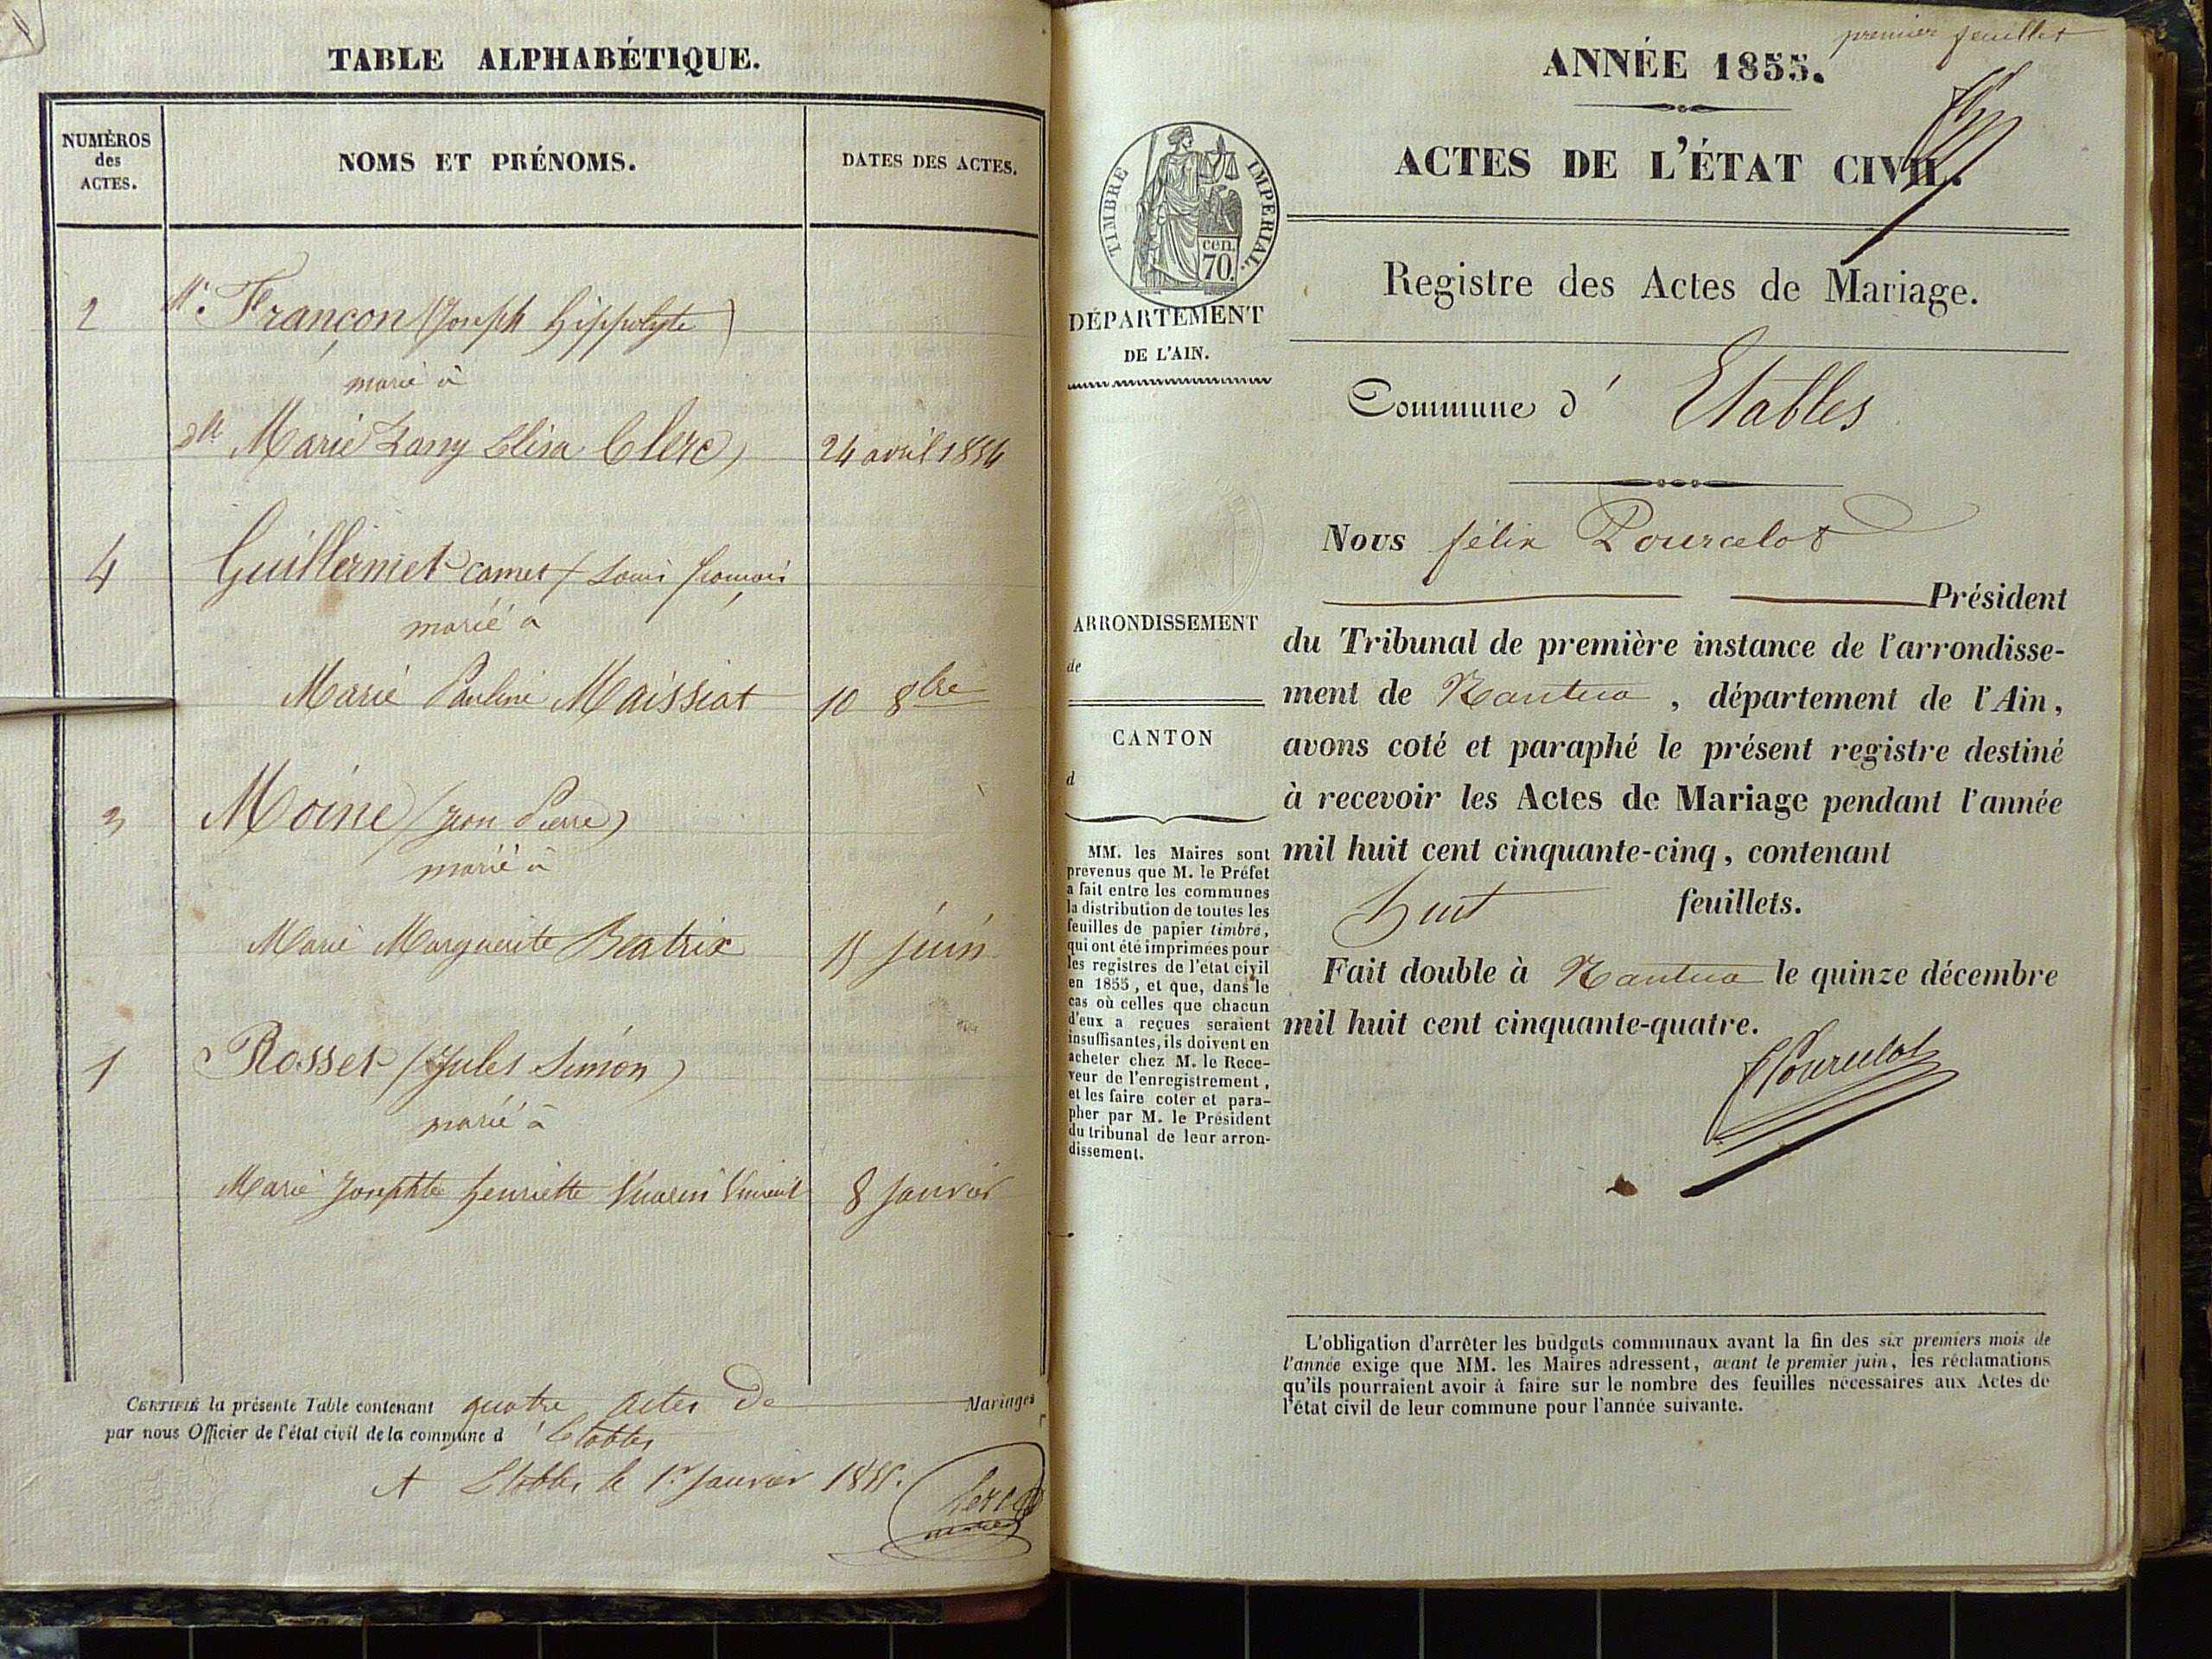 TABLE ALPHABÉTIQUE.
NUMÉROS
des
ACTES.
NOMS ET PRÉNOMS.
DATES DES ACTES.
2
Mr. Françon (Joseph hippolyte)
marié à
dlle Marie Fany Elisa Clerc, 24 avril 1854
4
Guillermet Camet (Louis françois
marié à
Marie Pauline Maissiat 10 8bre
3
Moine (Jean Pierre)
marié à
Marie Marguerite Beatrix 15 juin
1
Rosset (Jules Simon)
marié à
Marie Josephte henriette Vuarin Vincent 8 Janvier
CERTIFIÉ la présente Table contenant quatre actes de Mariages
par nous Officier de l'état civil de la commune d'Etables
A Etables le 1er Janvier 1855.
premier feuillet
ANNÉE 1855.
ACTES DE L'ÉTAT CIVIL.
TIMBRE IMPÉRIAL.
cen.
70.
DÉPARTEMENT
DE L'AIN.
Registre des Actes de Mariage.
Commune d' Etables
Nous félix Pourcelot
Président
du Tribunal de première instance de l'arrondisse-
ment de Nantua, département de l'Ain,
avons coté et paraphé le présent registre destiné
à recevoir les Actes de Mariage pendant l'année
mil huit cent cinquante-cinq, contenant
huit feuillets.
Fait double à Nantua le quinze décembre
mil huit cent cinquante-quatre.
FPourcelot
ARRONDISSEMENT
de
CANTON
d
MM. les Maires sont
prévenus que M. le Préfet
a fait entre les communes
la distribution de toutes les
feuilles de papier timbré,
qui ont été imprimées pour
les registres de l'état civil
en 1855, et que, dans le
cas où celles que chacun
d'eux a reçues seraient
insuffisantes, ils doivent en
acheter chez M. le Rece-
veur de l'enregistrement,
et les faire coter et para-
pher par M. le Président
du tribunal de leur arron-
dissement.
L'obligation d'arrêter les budgets communaux avant la fin des six premiers mois de
l'année exige que MM. les Maires adressent, avant le premier juin, les réclamations
qu'ils pourraient avoir à faire sur le nombre des feuilles nécessaires aux Actes de
l'état civil de leur commune pour l'année suivante.